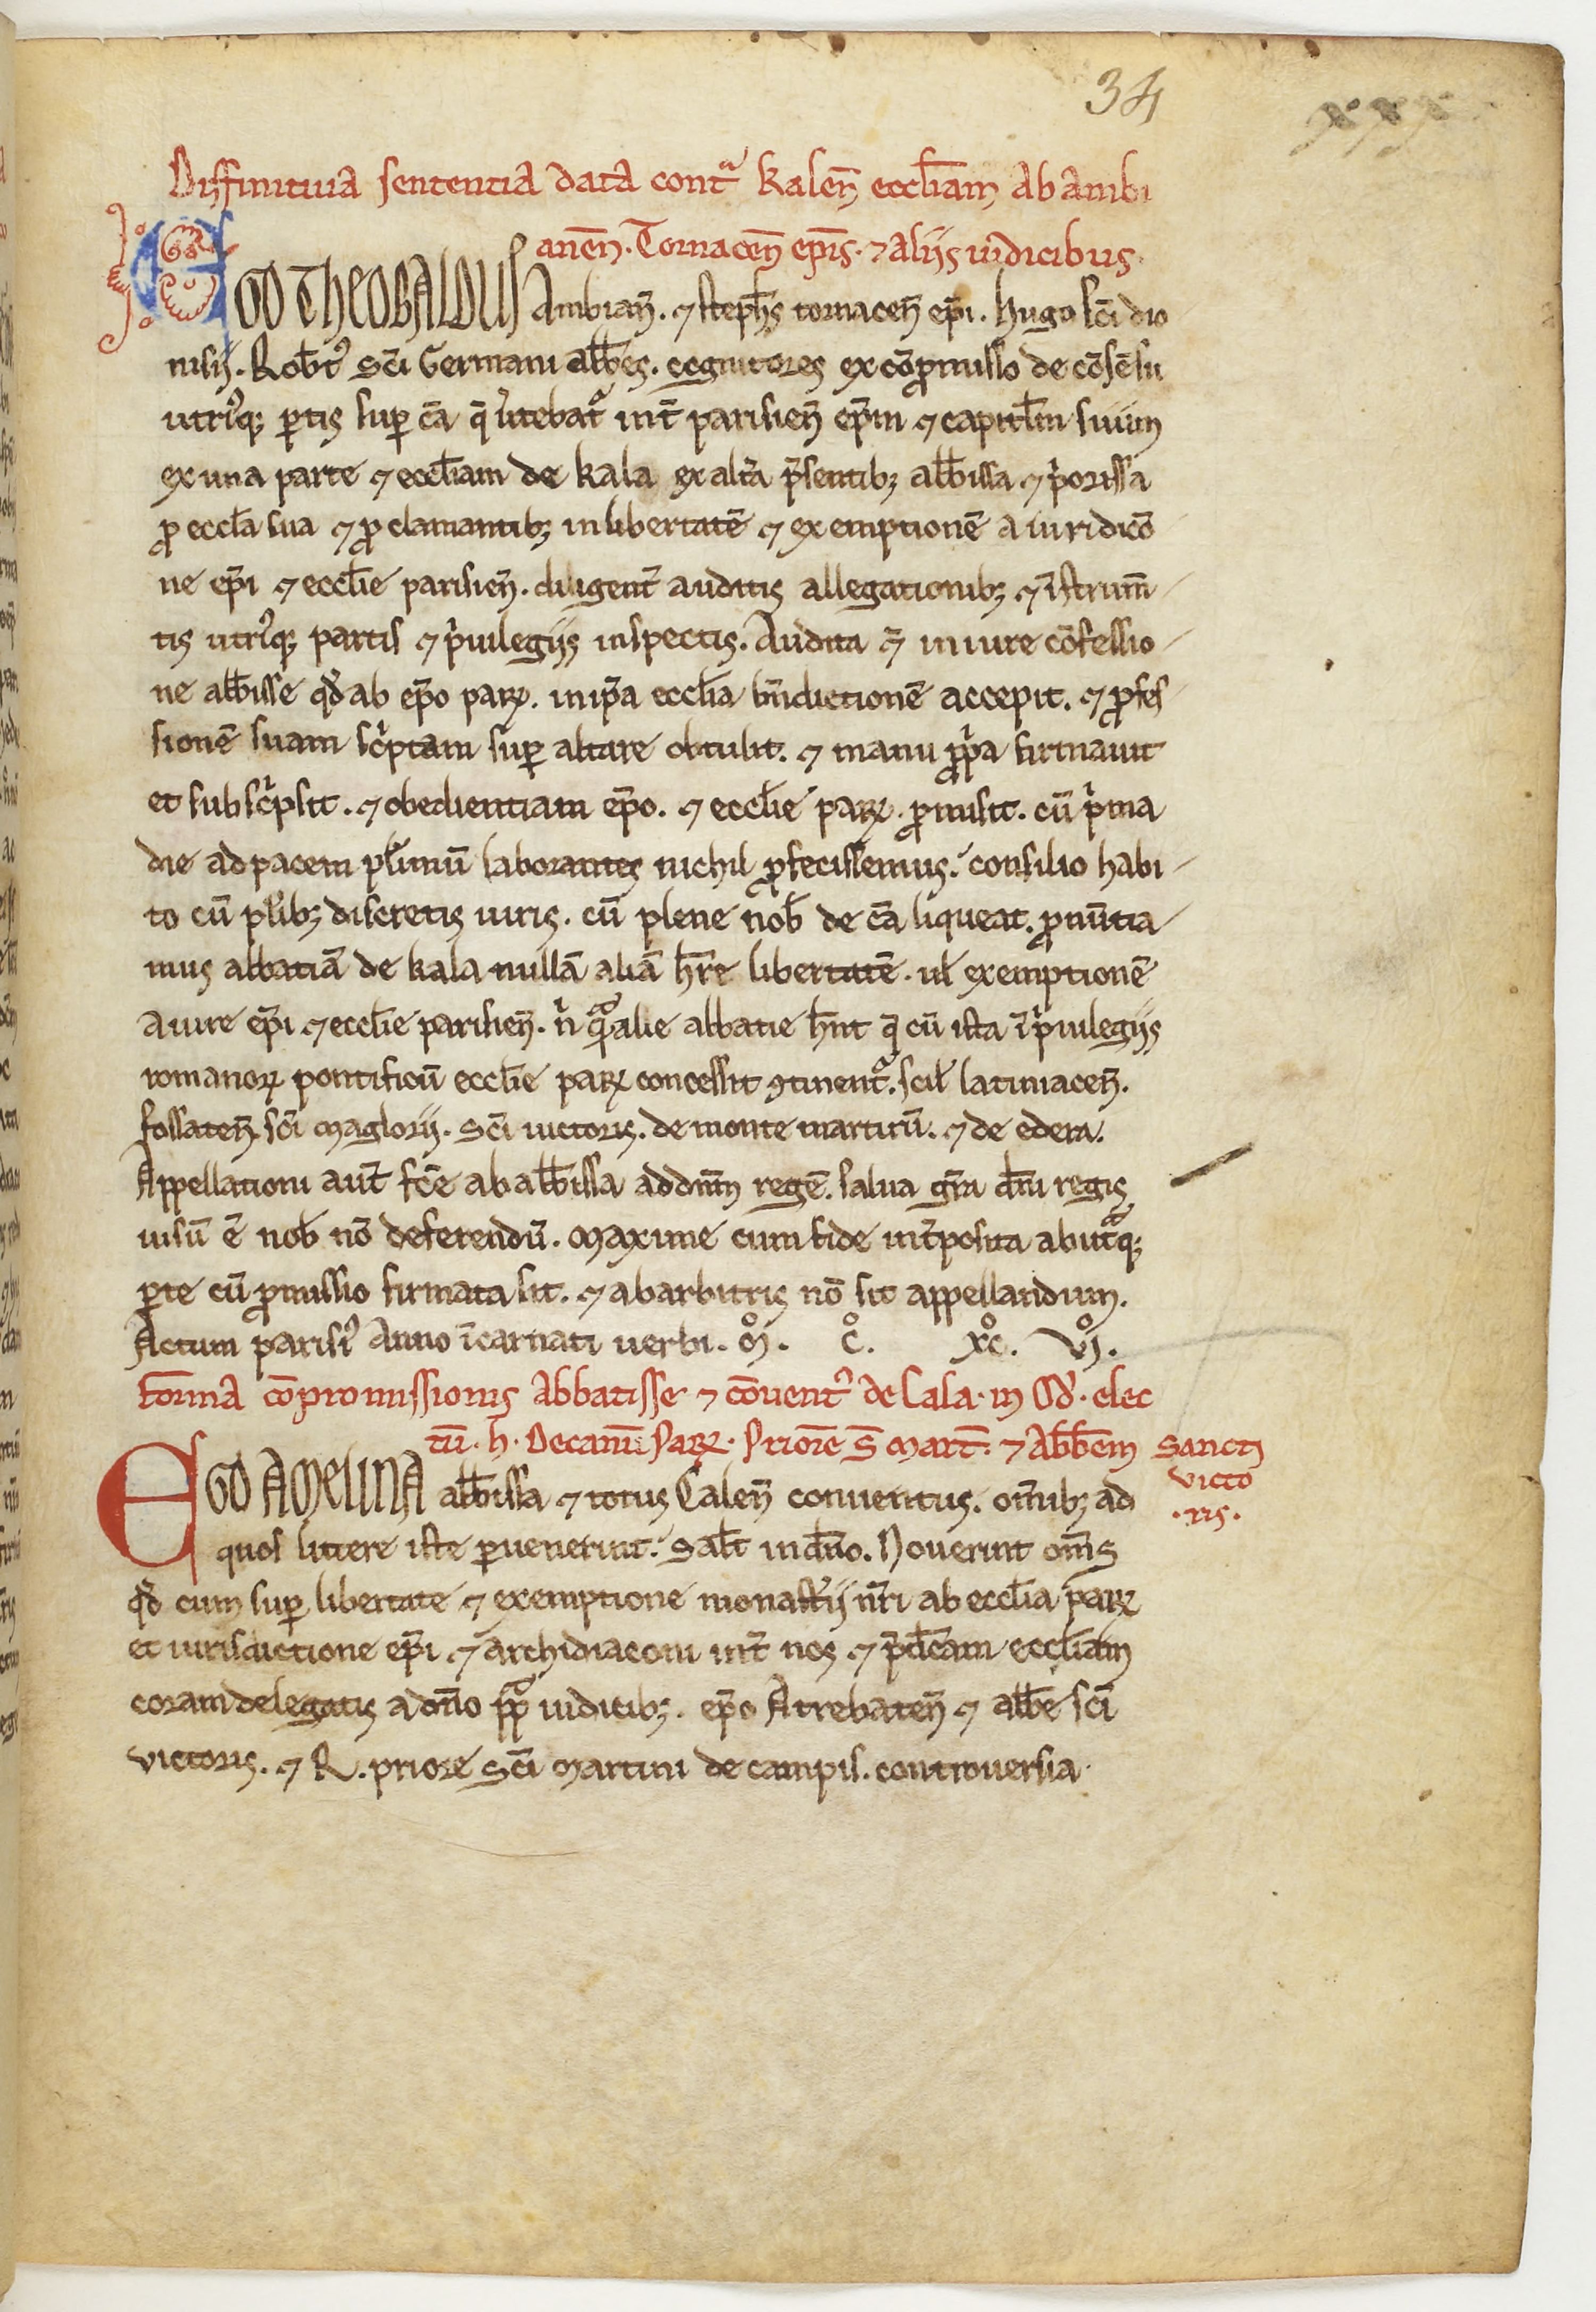 34
xxx
Diffinitiua sententia data contᵃ kaleñ eccl̄iam ab ambi
aneñ. Tornaceñ ep̄is. ⁊ aliis iudicibus.
EGO THEOBALDUS Ambiañ. ⁊ steph̄s tornaceñ ep̄i. hugo sc̄i dio
nisij. Rob̄tꝰ sc̄i Germani abb̄es. cognitores ex cōpromisso de cōsēsu
utriꝰqꝫ ꝑtis suꝑ cā q̄ ũtebatᷣ int̄ parisieñ ep̄m ⁊ capitl̄m suum
ex una parte ⁊ eccl̄iam de kala ex alt̄a p̄sentibꝫ abb̄issa ⁊ p̓orissa
ꝓ eccl̄a sua ⁊ ꝓclamantibꝫ in libertatē ⁊ exemptionē a iuridicō
ne ep̄i ⁊ eccl̄ie parisieñ. diligent̄ auditis allegationibꝫ ⁊ īstrum̄
tis utriꝰqꝫ partis ⁊ p̓uilegijs inspectis. Audita ⁊̄ in iure cōfessio
ne abb̄isse qd̓ ab ep̄o paꝝ. in ip̄a eccl̄ia bn̄dictionē accepit. ⁊ ꝓfes
sionē suam sc̓ptam suꝑ altare obtulit. ⁊ manu ꝓp̓a firmauit
et subsc̓psit. ⁊ obedientiam ep̄o. ⁊ eccl̄ie paꝝ. ꝓmisit. cū p̓ma
die ad pacem pl̓imū laborantes nichil ꝓfecissemus. consilio habi
to cū pl̓ibꝫ discretis uiris. cū plene nob̄ de cā liqueat. ꝓnūtia
mus abbatiā de kala nullā aliā h̄re libertatē. ul̄ exemptionē
a iure ep̄i ⁊ eccl̄ie parisieñ. n̓ qᵃ̄ alie abbatie h̄nt q̄ cū ista ī p̓uilegijs
romanoꝝ pontificū eccl̄ie paꝝ concessit ꝯtinentᷣ. scil̄ latiniaceñ.
fossateñ. sc̄i maglorij. sc̄i uictoris. de monte martirū. ⁊ de edera.
Appellationi aut̄ fc̄e ab abb̄issa ad dn̄m regē. salua gr̄a dn̄i regis
uisū ē nob̄ nō deferendū. maxime cum fide int̄posita ab utᵃqꝫ
ꝑte cū ꝓmissio firmata sit. ⁊ ab arbitris nō sit appellandum.
Actum parisiꝰ Anno īcarnati uerbi. m̊. c̊. xc̊. vj̊.
forma cōpromissionis abbatisse ⁊ cōuentꝰ de Cala. in Od̓. elec
tū. h. Decanū Paꝝ. Priorē S̄ mart̄. ⁊ Abb̄em Sancti
victo
.ris.
EGO AMELINA abb̄issa ⁊ totus Caleñ conuentus. om̄ibꝫ ad
quos littere iste ꝑuenerint. Sal̄t in dn̄o. Nouerint om̄s
qd̓ cum suꝑ libertate ⁊ exemptione monast̓ij nr̄i ab eccl̄ia paꝝ
et iurisdictione ep̄i ⁊ archidiaconi int̄ nos ⁊ p̄dc̄am eccl̄iam
coram delegatis a dn̄o pp̄ᵃ iudicibꝫ. ep̄o Atrebateñ ⁊ abb̄e sc̄i
victoris. ⁊ R. priore sc̄i martini de campis. controuersia.